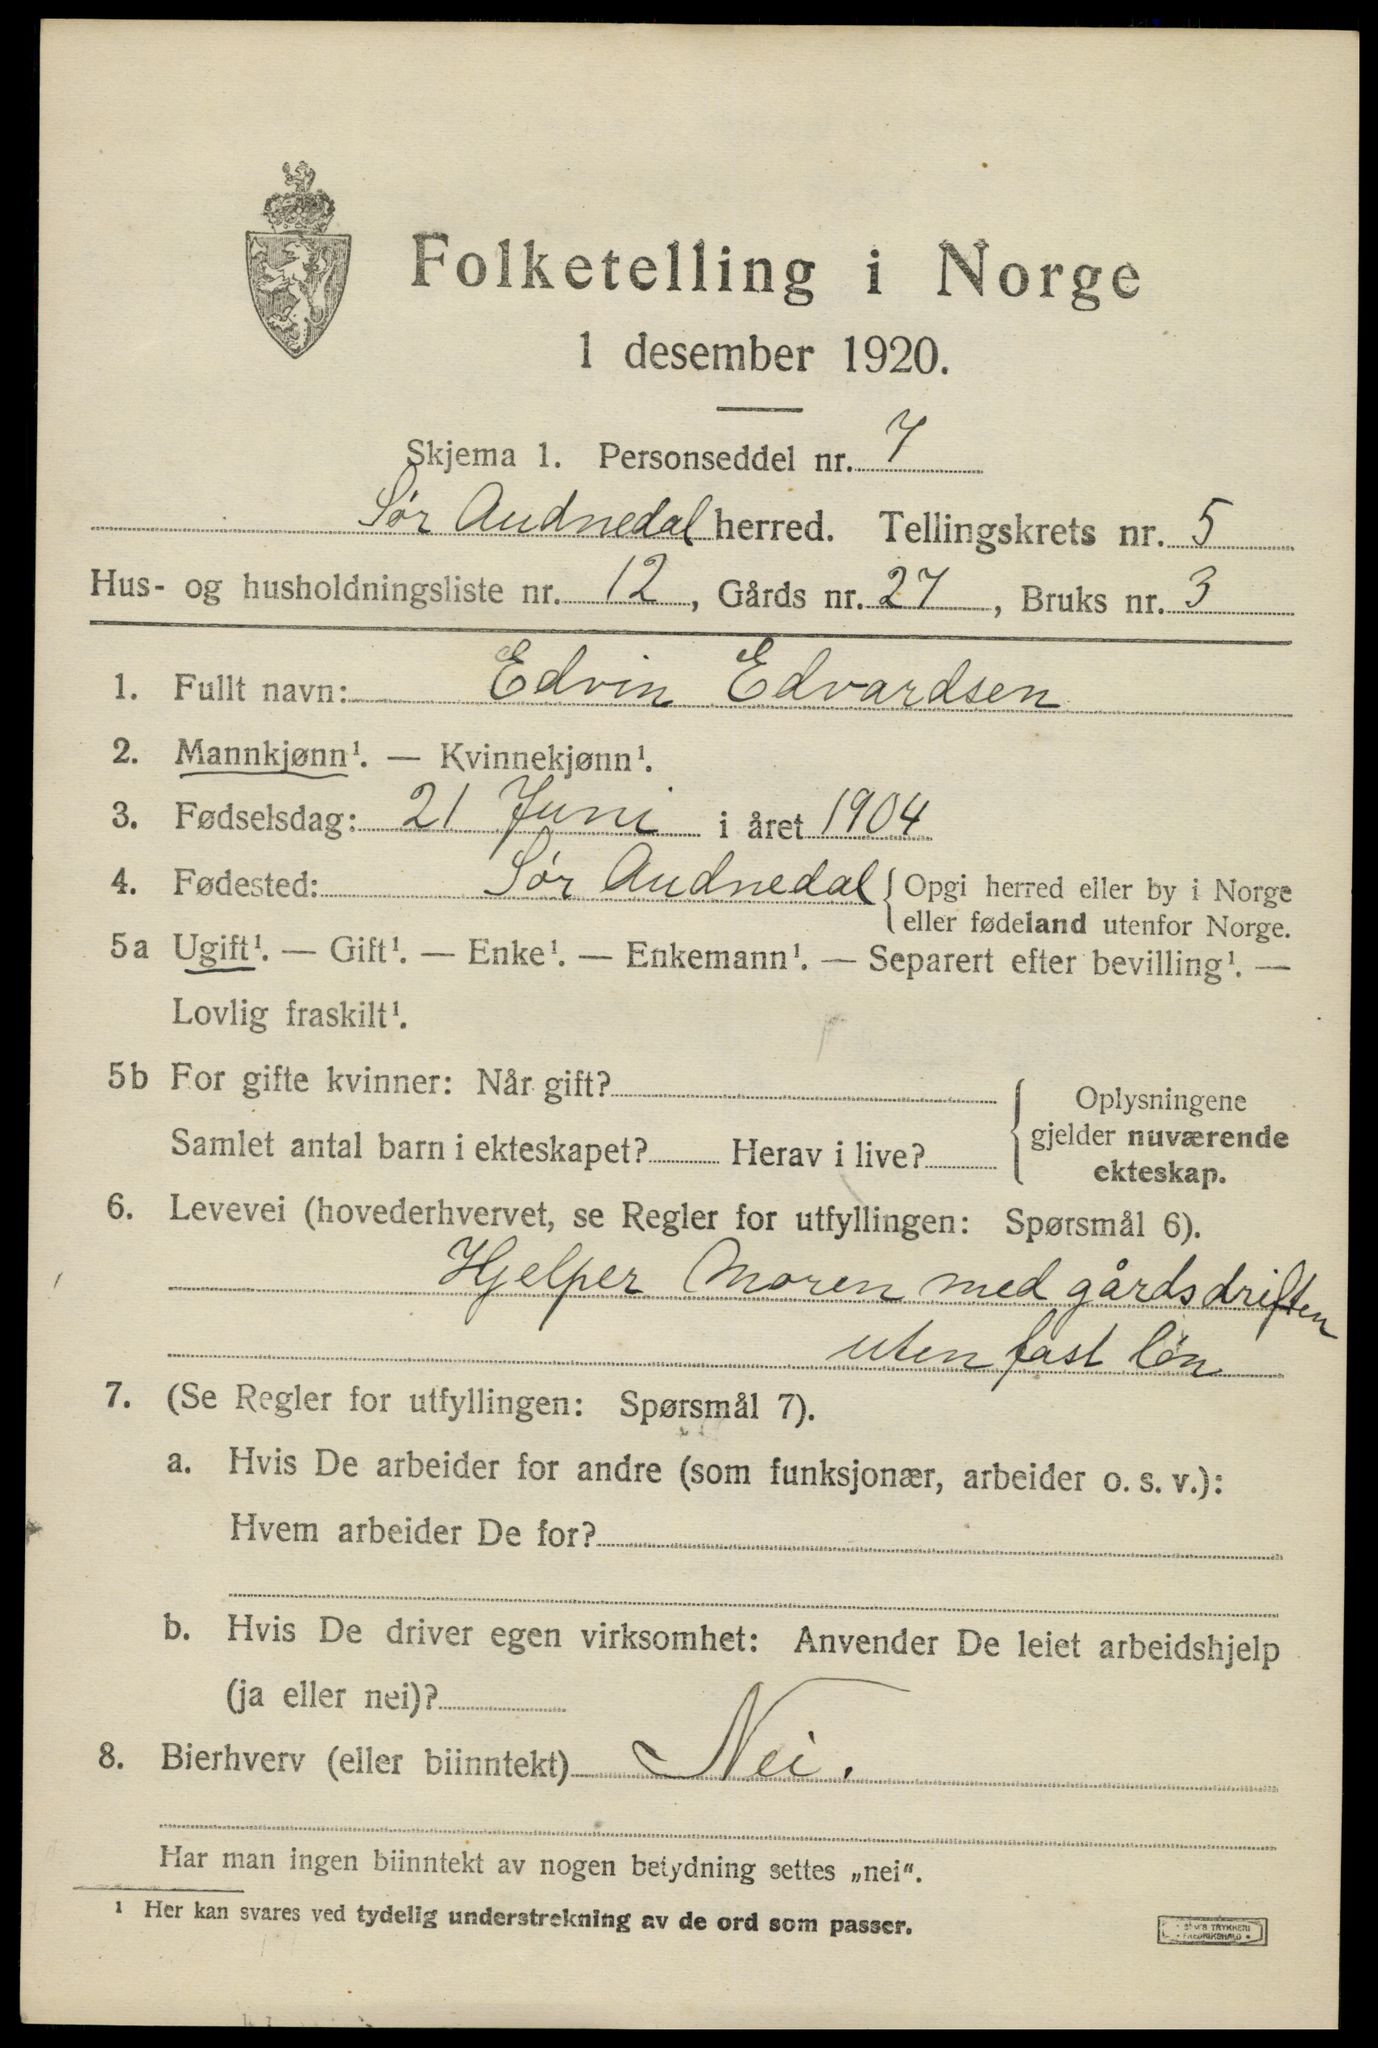 Folketelling i Norge
1 desember 1920.
Skjema 1. Personseddel nr. 7
Sør Audnedal herred. Tellingskrets nr. 5
Hus- og husholdningsliste nr. 12, Gårds nr. 27, Bruks nr. 3
1. Fullt navn: Edvin Edvardsen
2. Mannkjønn¹. — Kvinnekjønn¹.
3. Fødselsdag: 21 Juni i året 1904
4. Fødested: Sør Audnedal { Opgi herred eller by i Norge
eller fødeland utenfor Norge.
5a Ugift¹. — Gift¹. — Enke¹. — Enkemann¹. — Separert efter bevilling¹. —
Lovlig fraskilt¹.
5b For gifte kvinner: Når gift?
Samlet antal barn i ekteskapet? Herav i live?
Oplysningene
gjelder nuværende
ekteskap.
6. Levevei (hovederhvervet, se Regler for utfyllingen: Spørsmål 6).
Hjelper Moren med gårdsdriften
uten fast løn
7. (Se Regler for utfyllingen: Spørsmål 7).
a. Hvis De arbeider for andre (som funksjonær, arbeider o. s. v.):
Hvem arbeider De for?
b. Hvis De driver egen virksomhet: Anvender De leiet arbeidshjelp
(ja eller nei)?
8. Bierhverv (eller biinntekt) Nei.
Har man ingen biinntekt av nogen betydning settes „nei“.
¹ Her kan svares ved tydelig understrekning av de ord som passer.
TRYKKERI
FREDRIKSHALD